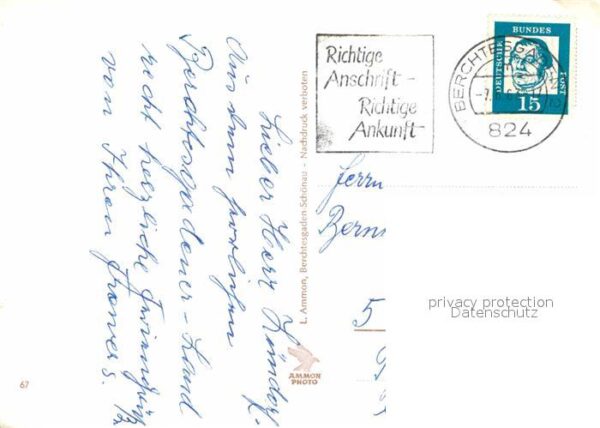 Lieber Herr
Aus dem
Berchtesgadener-Land
recht herzliche
von Ihren
L. Ammon, Berchtesgaden-Schönau - Nachdruck verboten
AMMON
PHOTO
67
Richtige
Anschrift -
Richtige
Ankunft
BERCHTESGADEN
824
BUNDES
DEUTSCHE
POST
15
Herrn
Bern
5
privacy protection
Datenschutz